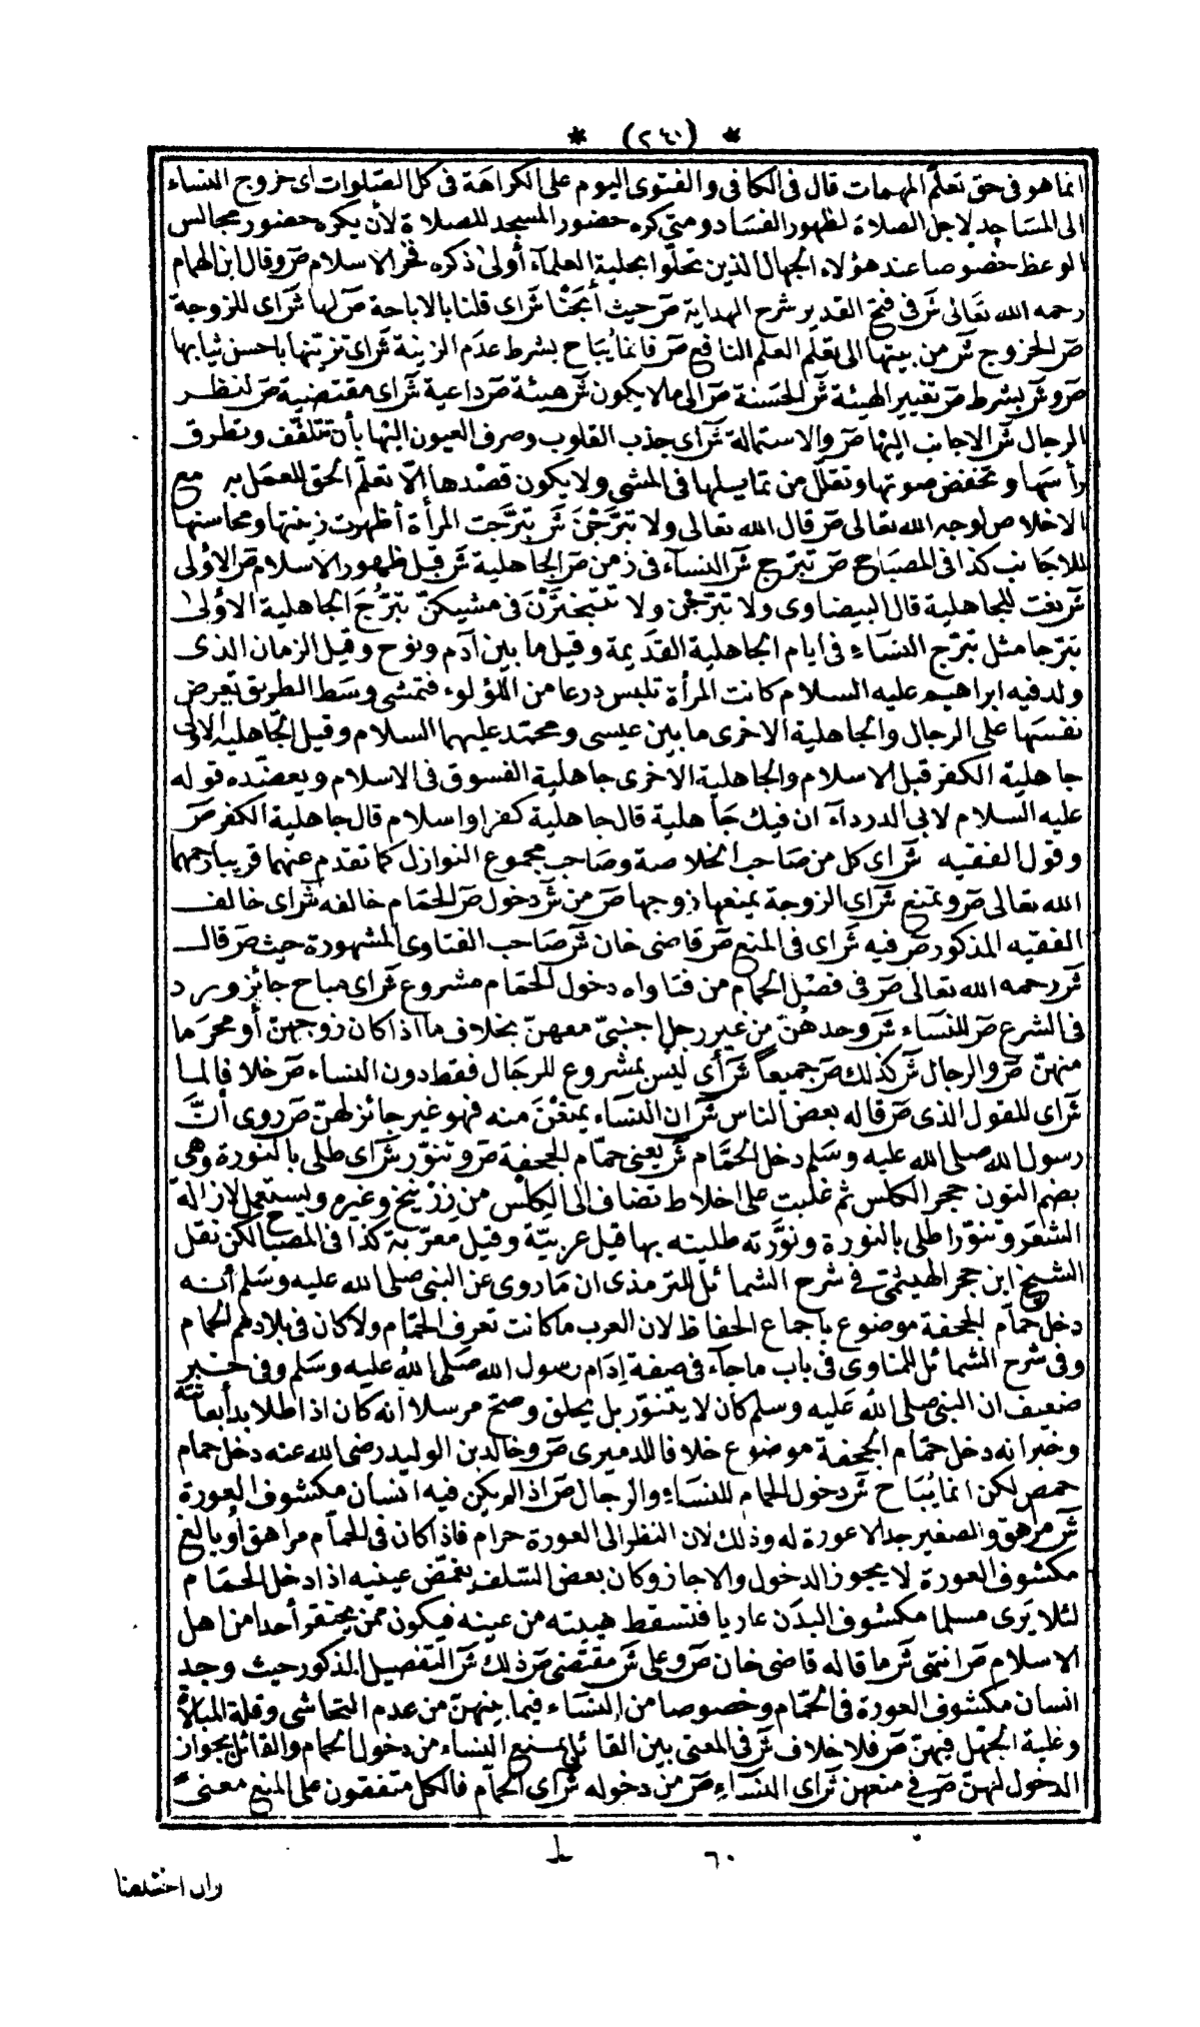 * (٢٤٠) *
انما هو فى حق تعلم المهمات قال فى الكافى والفتوى اليوم على الكراهة فى كل الصلوات اى خروج النساء
الى المساجد لاجل الصلاة لظهور الفساد ومتى كره حضور المسجد للصلاة لأن يكره حضور مجالس
الوعظ خصوصا عند هؤلاء الجهال الذين تحلوا بحلية العلمآء أولى ذكره فخر الاسلام صَر وقال ابن الهمام
رحمه الله تعَالى شَر فى فتح القدير شرح الهداية صَر حيث أبَحْنا شَر اى قلنا بالاباحة صَر لها شَر اى للزوجة
صَر الخروج شَر من بيتها الى تعلم العلم النافع صَر فانما يُبَاح بشرط عدَم الزينة شَر اى تزيّنها باحسن ثيابها
صَر و شَر بشرط صَر تغيير الهيئة شَر الحَسَنة صَر الى ما لا يكون شَر هيئة صَر داعية شَر اى مقتضية صَر لنظر
الرجال شَر الاجانب اليها صَر والاستمالة شَر اى جذب القلوب وصرف العيون اليْها بأن تتلفّف وتطرق
رأسَها وتخفض صوتها وتقلّل من تمايسلها فى المشى ولا يكون قصْدها الاّ تعلّم الحق للعمَل به مع
الاخلاص لوجه الله تعَالى صَر قال الله تعالى ولا تبَرَّجْنَ شَر تبَرَّجت المرأة أظهرت زينتها ومحاسنها
للاجَانب كذا فى المصبَاح صَر تبَرّج شَر النسآء فى زمن صَر الجاهلية شَر قبل ظهور الاسلام صَر الأولى
شَر نعت للجاهلية قال البيضاوى ولا تبرّجن ولا تتبخترْنَ فى مشيكنّ تبَرُّجَ الجاهلية الاولى
تبَرّجا مثل تبَرّج النسَاء فى ايام الجاهلية القدَيمة وقيل ما بين آدم ونوح وقيل الزمان الذى
ولد فيه ابراهيم عليه السلام كانت المرأة تلبس درعا من اللؤلوء فتمشى وسَط الطريق تعرض
نفسَها على الرجال والجاهلية الاخرى ما بين عيسى ومحمّد عليهما السلام وقيل الجاهلية الاولى
جاهلية الكفر قبل الاسلام والجاهلية الاخرى جاهلية الفسوق فى الاسلام ويعضّده قوله
عليه السّلام لابى الدردآء ان فيك جَاهلية قال جاهلية كفر او اسلام قال جاهلية الكفر صَر
وقول الفقيه شَر اى كل من صَاحب الخلاصة وصَاحب مجموع النوازل كما تقدم عنهما قريبا رحمهما
الله تعَالى صَر وتمنع شَر اى الزوجة يمنعها زوجها صَر من شَر دخول صَر الحمَام خالفه شَر اى خالف
الفقيه المذكور صَر فيه شَر اى فى المنع صَر قاضى خان شَر صَاحب الفتاوى المشهورة حيث صَر قال
شَر رحمه الله تعَالى صَر فى فصْل الحمام من فتاواه دخول الحمّام مشروع شَر اى مباح جائز ورد
فى الشرع صَر للنسَاء شَر وحدهُنّ من غير رجل اجنبىّ معهنّ بخلاف ما اذا كان زوجهنّ أو محرَما
منهنّ صَر والرجال شَر كذلك صَر جميعاً شَر أى ليس بمشروع للرجَال فقط دون النساء صَر خلافا لما
شَر اى للقول الذى صَر قاله بعض الناس شَر ان النسَاء يمنعْنَ منه فهو غير جائز لهنّ صَر روى أنَّ
رسول الله صلى الله عليه وسَلم دخل الحَمَّام شَر يعنى حمّام الجحفة صَر وتنوّر شَر اى طلى بالنورة وهى
بضم النون حجر الكلس ثم غلبت على اخلاط تضاف الى الكِلْس من زِرْنيخ وغيره ويستعمل لازالة
الشعَر وتنوّر اطلى بالنورة ونوَّرته طليته بها قيل عربيّة وقيل معرّبة كذا فى المصبَاح لكن نقل
الشيخ ابن حجر الهيثمىّ فى شرح الشمائل للترمذى ان مَا روى عن النبى صلى الله عليه وسَلم أنه
دخل حمّام الجحفة موضوع باجماع الحفاظ لان العرب ما كانت تعرف الحمّام ولا كان فى بلادهم الحمام
وفى شرح الشمائل للمناوى فى باب ما جآء فى صفة اِدَام رسول الله صَلى اللهُ عليه وسَلم وفى خبر
ضعيف ان النبى صلى اللهُ عَليه وسلم كان لا يتنوّر بل يحلق وصحّ مرسلا أنه كان اذا طلا بدأ بعانته
وخبر انه دخل حمّام الجحفة موضوع خلافا للدميرى صَر وخالد بن الوليد رضى الله عنه دخل حمام
حمص لكن انما يُبَاح شَر دخول الحمام للنسَاء والرجال صَر اذا لم يكن فيه انسان مكشوف العورة
شَر مراهق والصغير جدا لا عورة له وذلك لان النظر الى العورة حرام فاذا كان فى الحمآم مراهق أو بالغ
مكشوف العورة لا يجوز الدخول والا جاز وكان بعض السّلف يغمّض عينيه اذا دخل الحمّام
لئلا يَرى مسلما مكشوف البدَن عاريا فتسقط هيبته من عينه فيكون ممن يحتقر أحدا من اهل
الاسلام صَر انتهى شَر ما قاله قاضى خان صَر وعلى شَر مقتضى صَر ذلك شَر التفصيل المذكور حيث وجد
انسان مكشوف العورة فى الحمّام وخصوصا من النسَاء فيما بينهنّ من عدم التحاشى وقلة المبالاة
وغلبة الجهْل فيهنّ صَر فلا خلاف شَر فى المعنى بين القائل بمنع النساء من دخول الحمام والقائل بجواز
الدخول لهنّ صَر فى منعهن شَر اى النسَاءِ صَر من دخوله شَر اى الحمآم فالكل متفقون على المنع معنىً
٦٠
وان اختلفنا